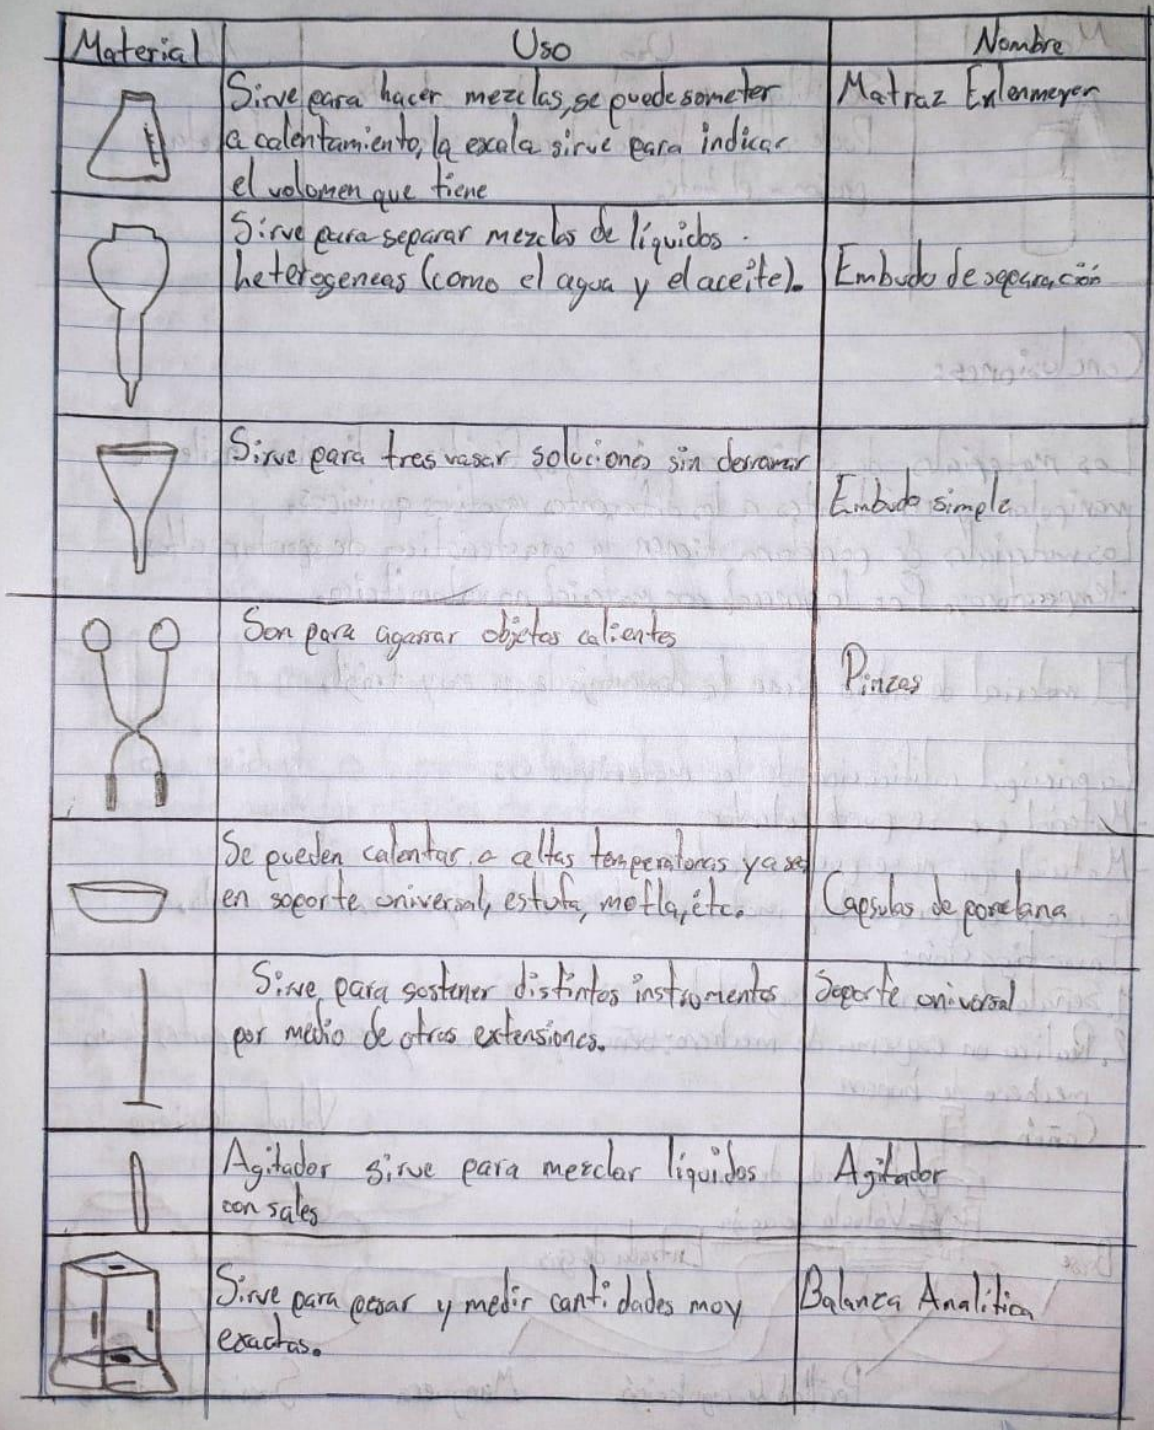 Material Uso Nombre
Sirve para hacer mezclas, se puede someter Matraz Erlenmeyer
a calentamiento, la escala sirve para indicar
el volumen que tiene
Sirve para separar mezclas de líquidos
heterogeneas (como el agua y el aceite). Embudo de separación
Sirve para trasvasar soluciones sin derramar
Embudo simple
Son para agarrar objetos calientes
Pinzas
Se pueden calentar a altas temperaturas ya sea
en soporte universal, estufa, mofla, etc. Capsulas de porcelana
Sirve para sostener distintos instrumentos Soporte universal
por medio de otras extensiones.
Agitador sirve para mezclar líquidos Agitador
con sales
Sirve para pesar y medir cantidades muy Balanza Analítica
exactas.